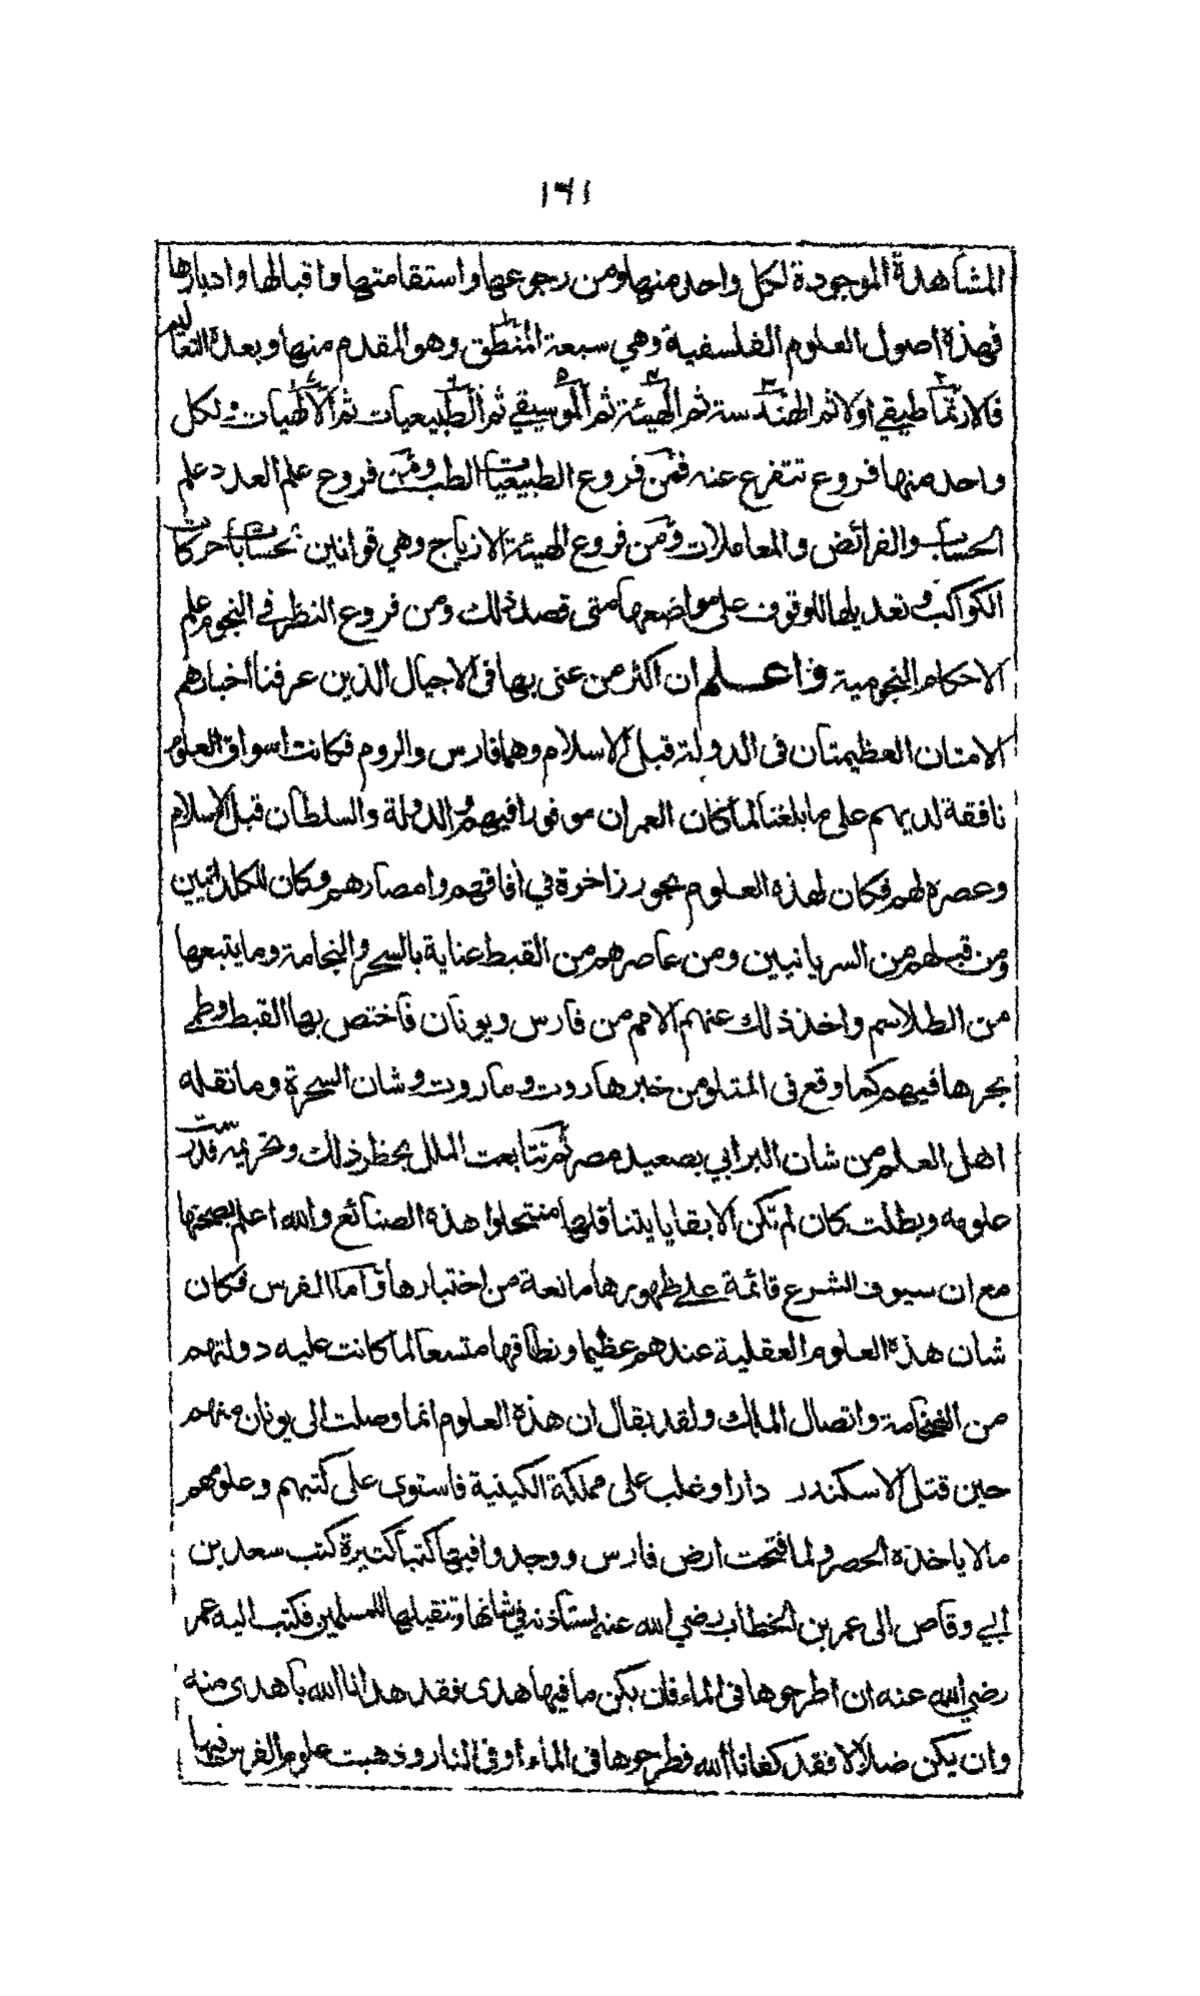 ١٣١
المشاهدة الموجودة لكل واحد منها ومن رجوعها واستقامتها واقبالها وادبارها
فهذه اصول العلوم الفلسفية وهي سبعة المنطق وهو المقدم منها وبعده التعاليم
فالارتماطيقي اولا ثم الهندسة ثم الهيئة ثم الموسيقي ثم الطبيعيات ثم الالهيات ولكل
واحد منها فروع تتفرع عنه فمن فروع الطبيعيات الطب ومن فروع علم العدد علم
الحساب والفرائض والمعاملات ومن فروع الهيئة الازياج وهي قوانين لحسابات حركات
الكواكب وتعديلها للوقوف على مواضعها متى قصد ذلك ومن فروع النظر في النجوم علم
الاحكام النجومية واعلم ان اكثر من عنى بها في الاجيال الذين عرفنا اخبارهم
الامتان العظيمتان في الدولة قبل الاسلام وهما فارس والروم فكانت اسواق العلوم
نافقة لديهم على ما بلغنا لما كان العمران موفورا فيهم والدولة والسلطان قبل الاسلام
وعصره لهم فكان لهذه العلوم بحور زاخرة في افاقهم وامصارهم وكان للكلدانيين
ومن قبلهم من السريانيين ومن عاصرهم من القبط عناية بالسحر والنجامة وما يتبعها
من الطلاسم واخذ ذلك عنهم الامم من فارس ويونان فاختص بها القبط وطمى
بحرها فيهم كما وقع في المتلو من خبر هاروت وماروت وشان السحرة وما نقله
اهل العلم من شان البرابي بصعيد مصر ثم تتابعت الملل بحظر ذلك وتحريمه فدرست
علومه وبطلت كان لم تكن الا بقايا يتناقلها منتحلوا هذه الصنائع والله اعلم بصحتها
مع ان سيوف الشرع قائمة على ظهورها مانعة من اختبارها واما الفرس فكان
شان هذه العلوم العقلية عندهم عظيما ونطاقها متسعا لما كانت عليه دولتهم
من الفخامة واتصال الملك ولقد يقال ان هذه العلوم انما وصلت الى يونان منهم
حين قتل الاسكندر دارا وغلب على مملكة الكينية فاستوى على كتبهم وعلومهم
مالا ياخذه الحصر ولما فتحت ارض فارس ووجدوا فيها كتبا كثيرة كتب سعد بن
ابي وقاص الى عمر بن الخطاب رضي الله عنه استاذنه في شانها وتنقيلها للمسلمين فكتب اليه عمر
رضي الله عنه ان اطرحوها في الماء فان يكن ما فيها هدى فقد هدانا الله باهدى منه
وان يكن ضلالا فقد كفانا الله فطرحوها في الماء او في النار وذهبت علوم الفرس فيها